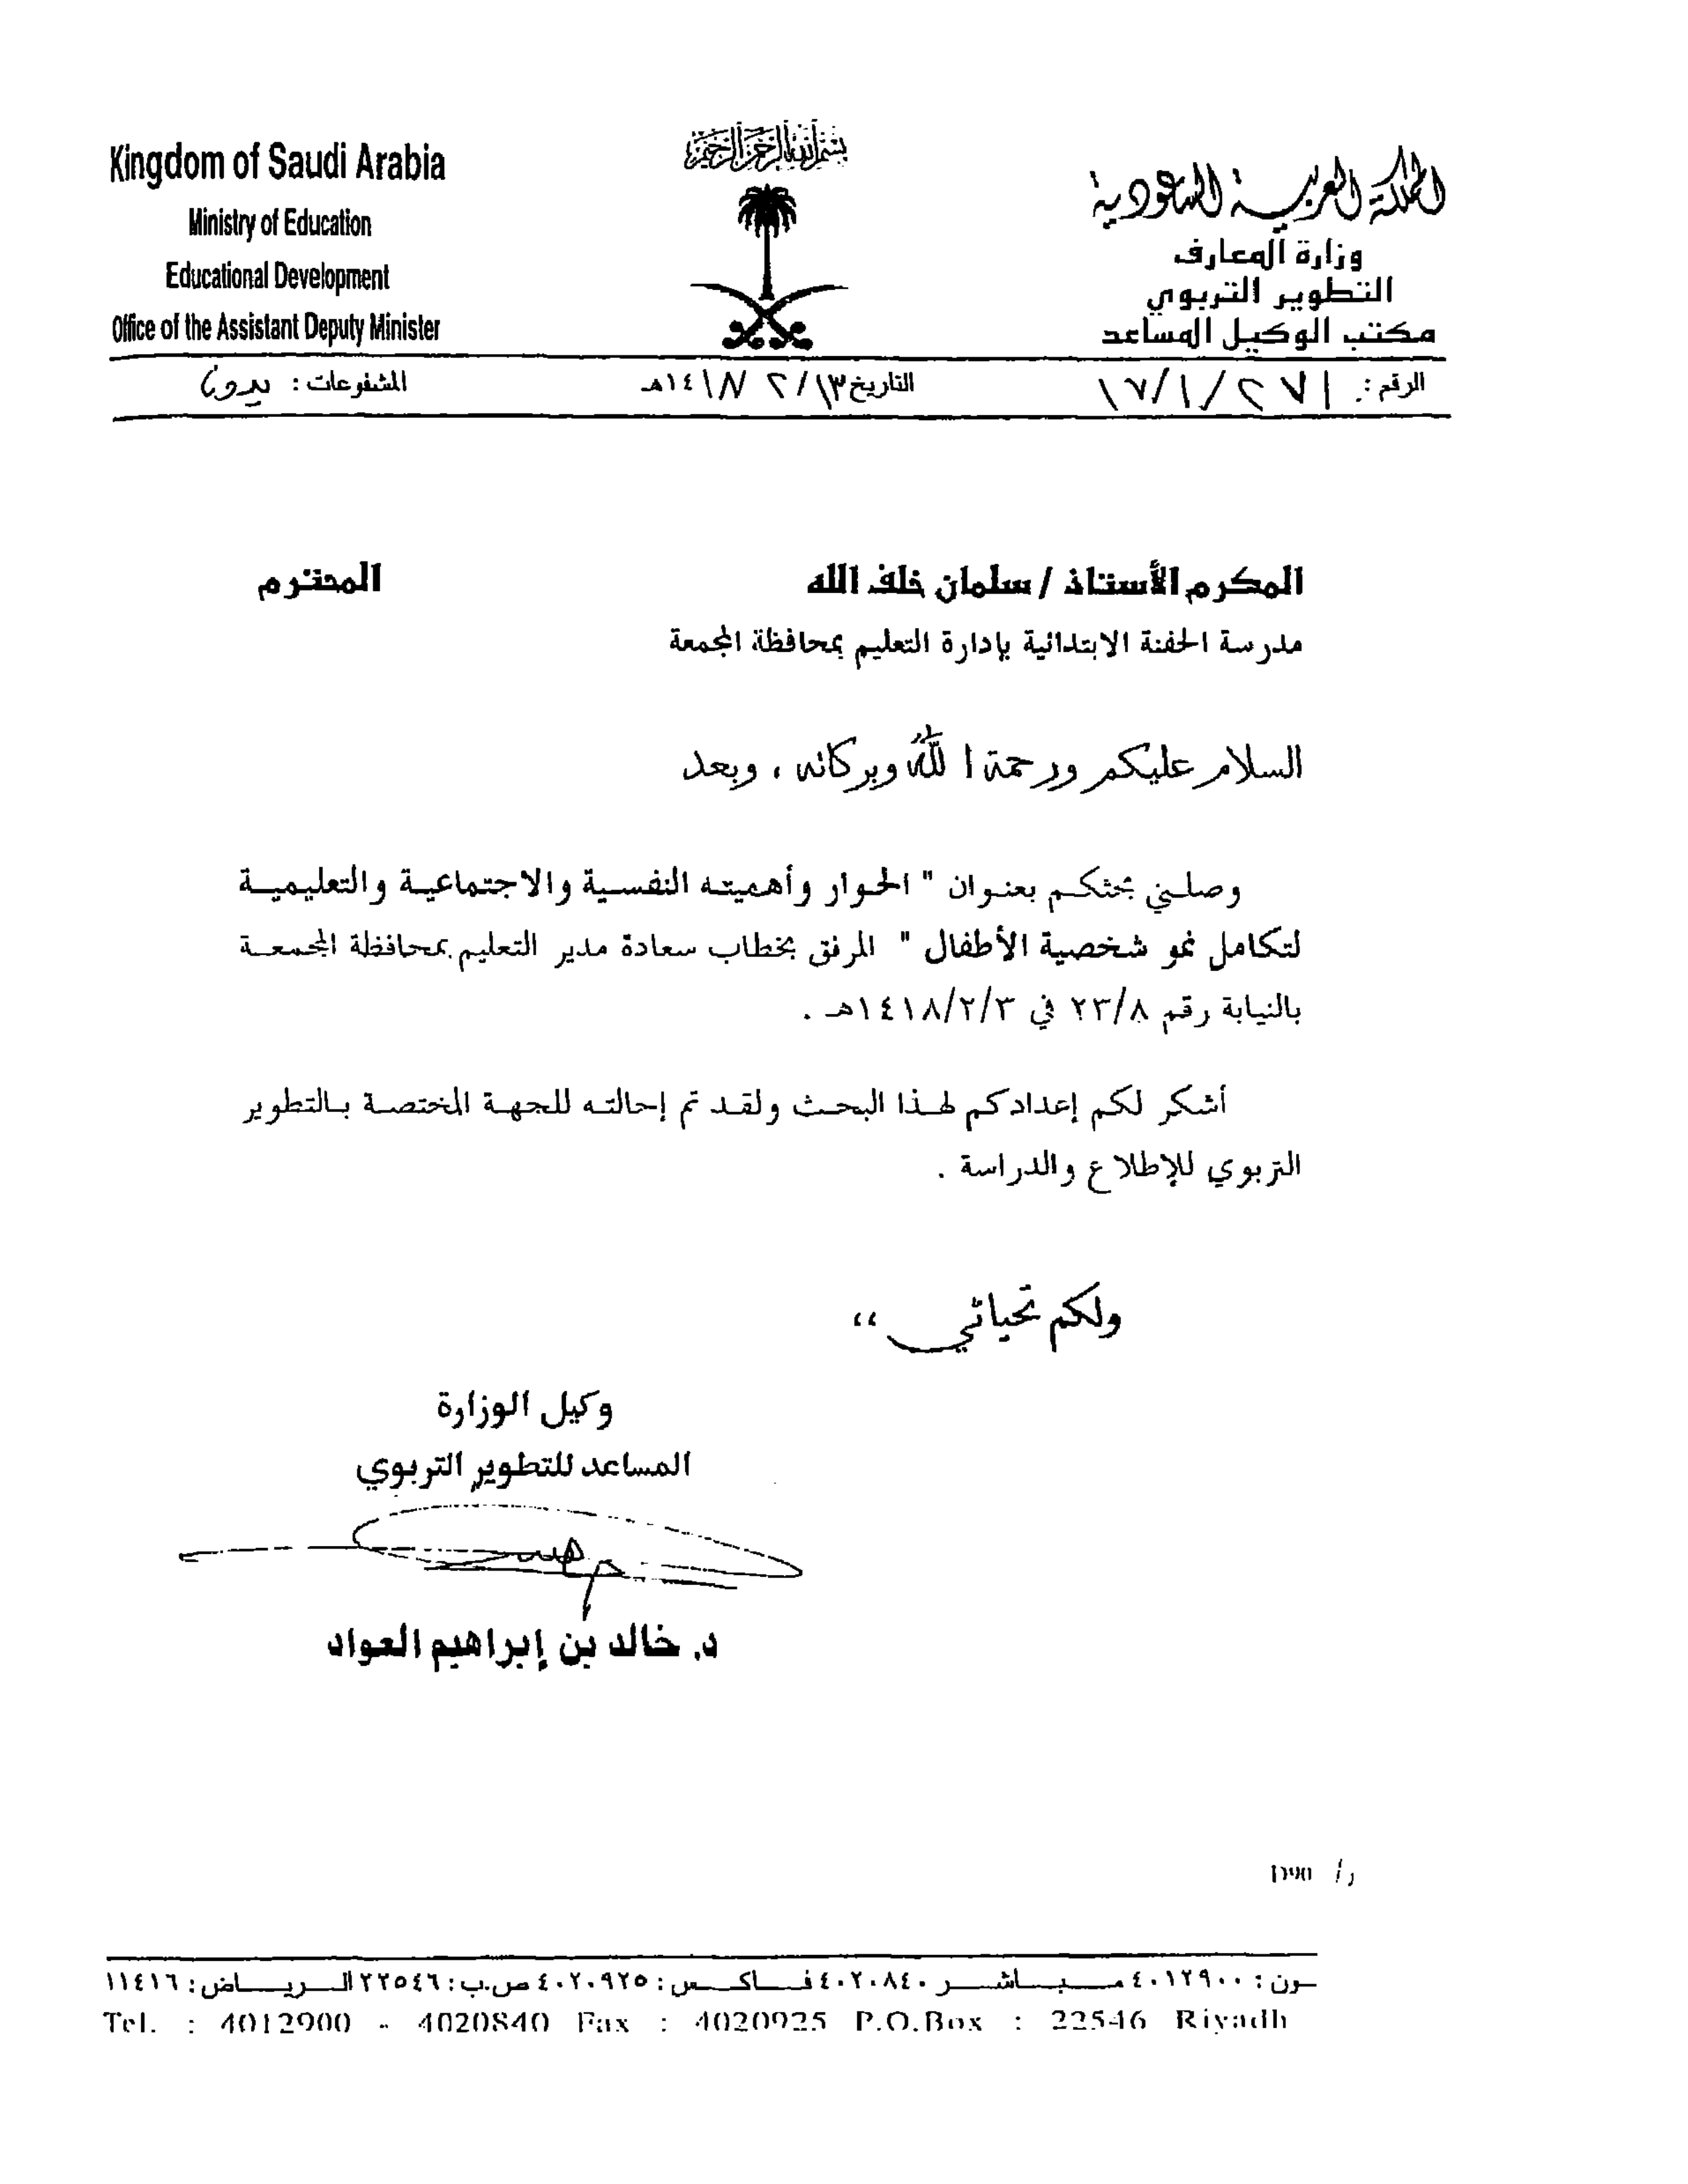 Kingdom of Saudi Arabia
Ministry of Education
Educational Development
Office of the Assistant Deputy Minister
بسم الله الرحمن الرحيم
المملكة العربية السعودية
وزارة المعارف
التطوير التربوي
مكتب الوكيل المساعد
الرقم : ١٧/١/٢٧١
التاريخ ١٣/ ٢ /١٤١٨هـ
المشفوعات : بدون
المكرم الأستاذ / سلمان خلف الله المحترم
مدرسة الحفنة الابتدائية بإدارة التعليم بمحافظة المجمعة
السلام عليكم ورحمة الله وبركاته ، وبعد
وصلني بحثكم بعنوان " الحوار وأهميته النفسية والاجتماعية والتعليمية
لتكامل نمو شخصية الأطفال " المرفق بخطاب سعادة مدير التعليم بمحافظة المجمعة
بالنيابة رقم ٢٣/٨ في ١٤١٨/٢/٣هـ .
أشكر لكم إعدادكم لهذا البحث ولقد تم إحالته للجهة المختصة بالتطوير
التربوي للإطلاع والدراسة .
ولكم تحياتي ،،
وكيل الوزارة
المساعد للتطوير التربوي
د. خالد بن إبراهيم العواد
ر/ D90
ـون : ٤٠١٢٩٠٠ مـباشـر ٤٠٢٠٨٤٠ فـاكـس : ٤٠٢٠٩٢٥ ص.ب : ٢٢٥٤٦ الـريـاض : ١١٤١٦
Tel. : 4012900 - 4020840 Fax : 4020925 P.O.Box : 22546 Riyadh